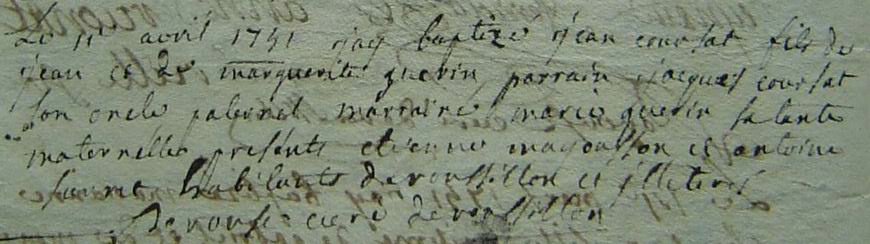 Le 11e avril 1751 jay baptize jean coursat fils de
jean et de marguerite guerin parrain jacques coursat
son oncle paternel marraine marie guerin sa tante
maternelle presents etienne et antoine
habitants de roussillon et illeteres
curé de roussillon